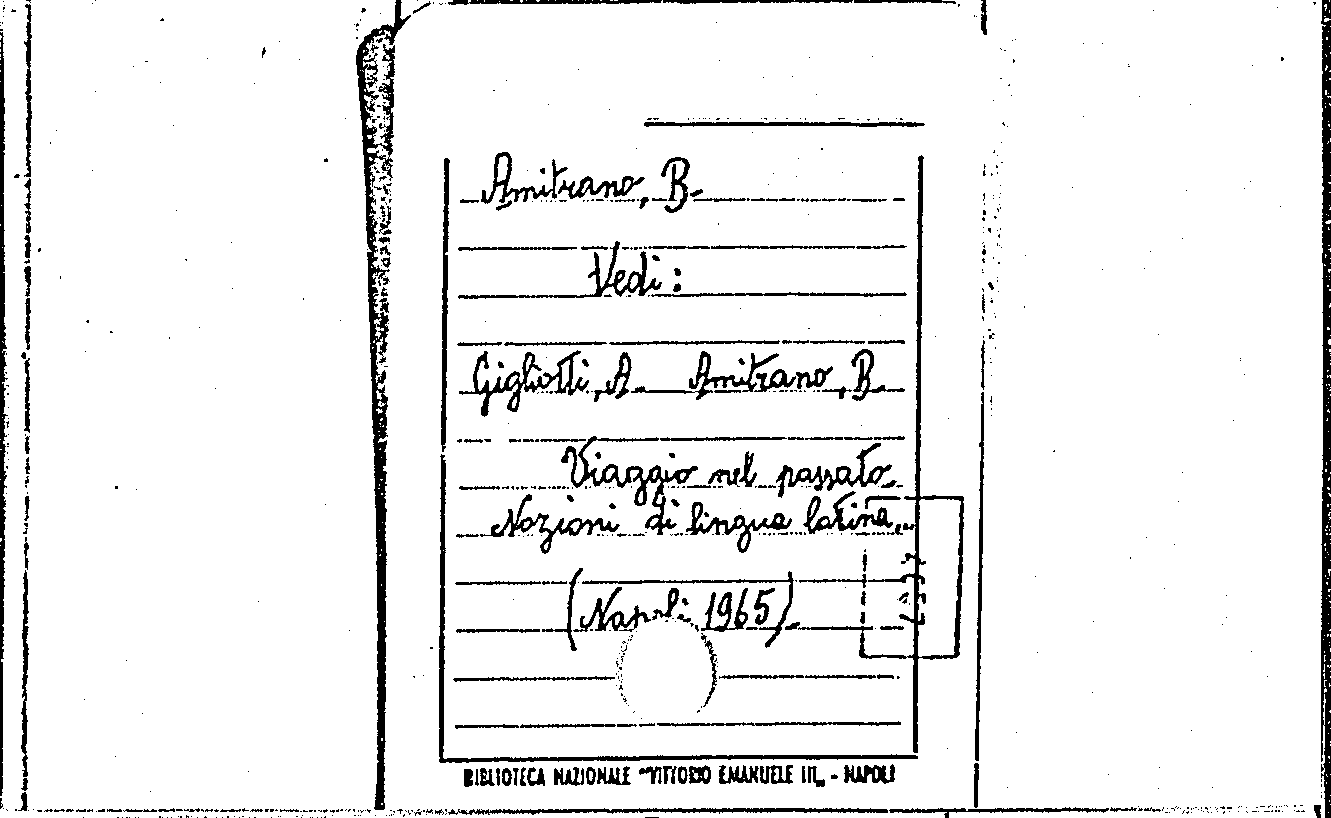 Amitrano, B.
Vedi:
Gigliotti, A. Amitrano, B.
Viaggio nel passato.
Nozioni di lingua latina...
(Napoli 1965).
BIBLIOTECA NAZIONALE "VITTORIO EMANUELE III„ - NAPOLI